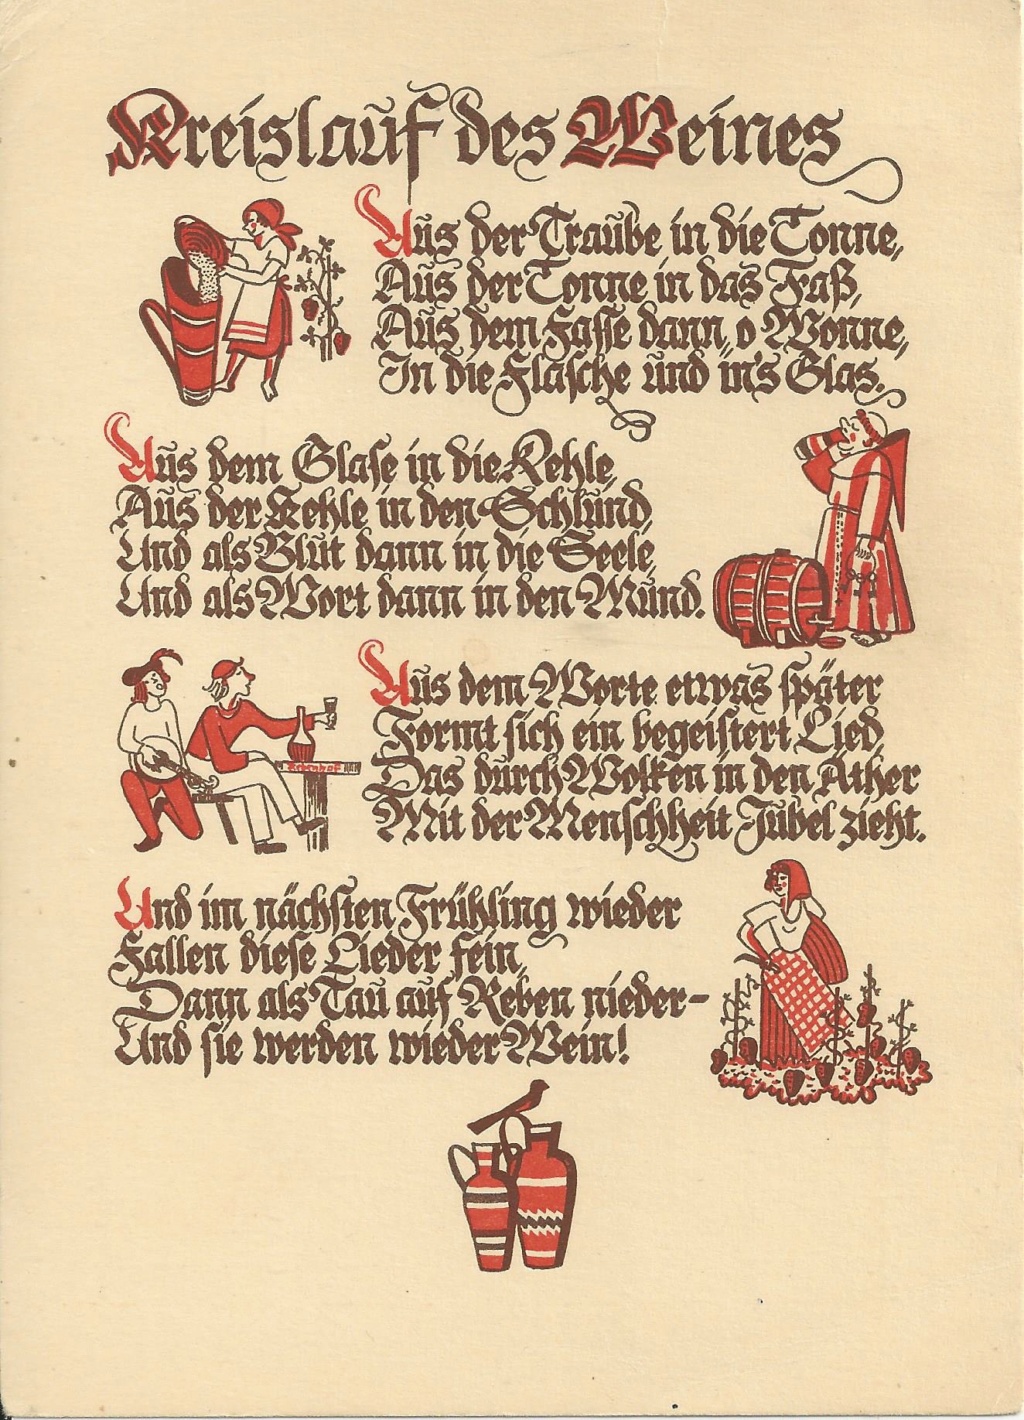 Kreislauf des Weines
Aus der Traube in die Tonne,
Aus der Tonne in das Faß,
Aus dem Fasse dann, o Wonne,
In die Flasche und in's Glas.
Aus dem Glase in die Kehle,
Aus der Kehle in den Schlund,
Und als Blut dann in die Seele,
Und als Wort dann in den Mund.
Aus dem Worte etwas später
Formt sich ein begeistert Lied,
Das durch Wolken in den Äther
Mit der Menschheit Jubel zieht.
Und im nächsten Frühling wieder
Fallen diese Lieder fein,
Dann als Tau auf Reben nieder-
Und sie werden wieder Wein!